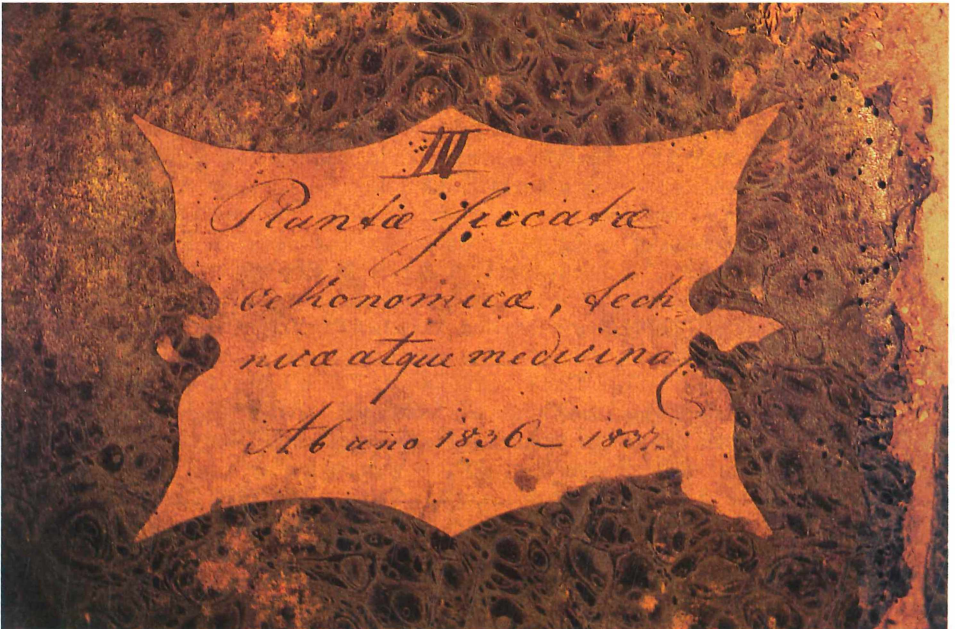 III
Plantæ siccatæ
oekonomicæ, tech
nicæ atque medicina
Ab año 1836 – 1837.